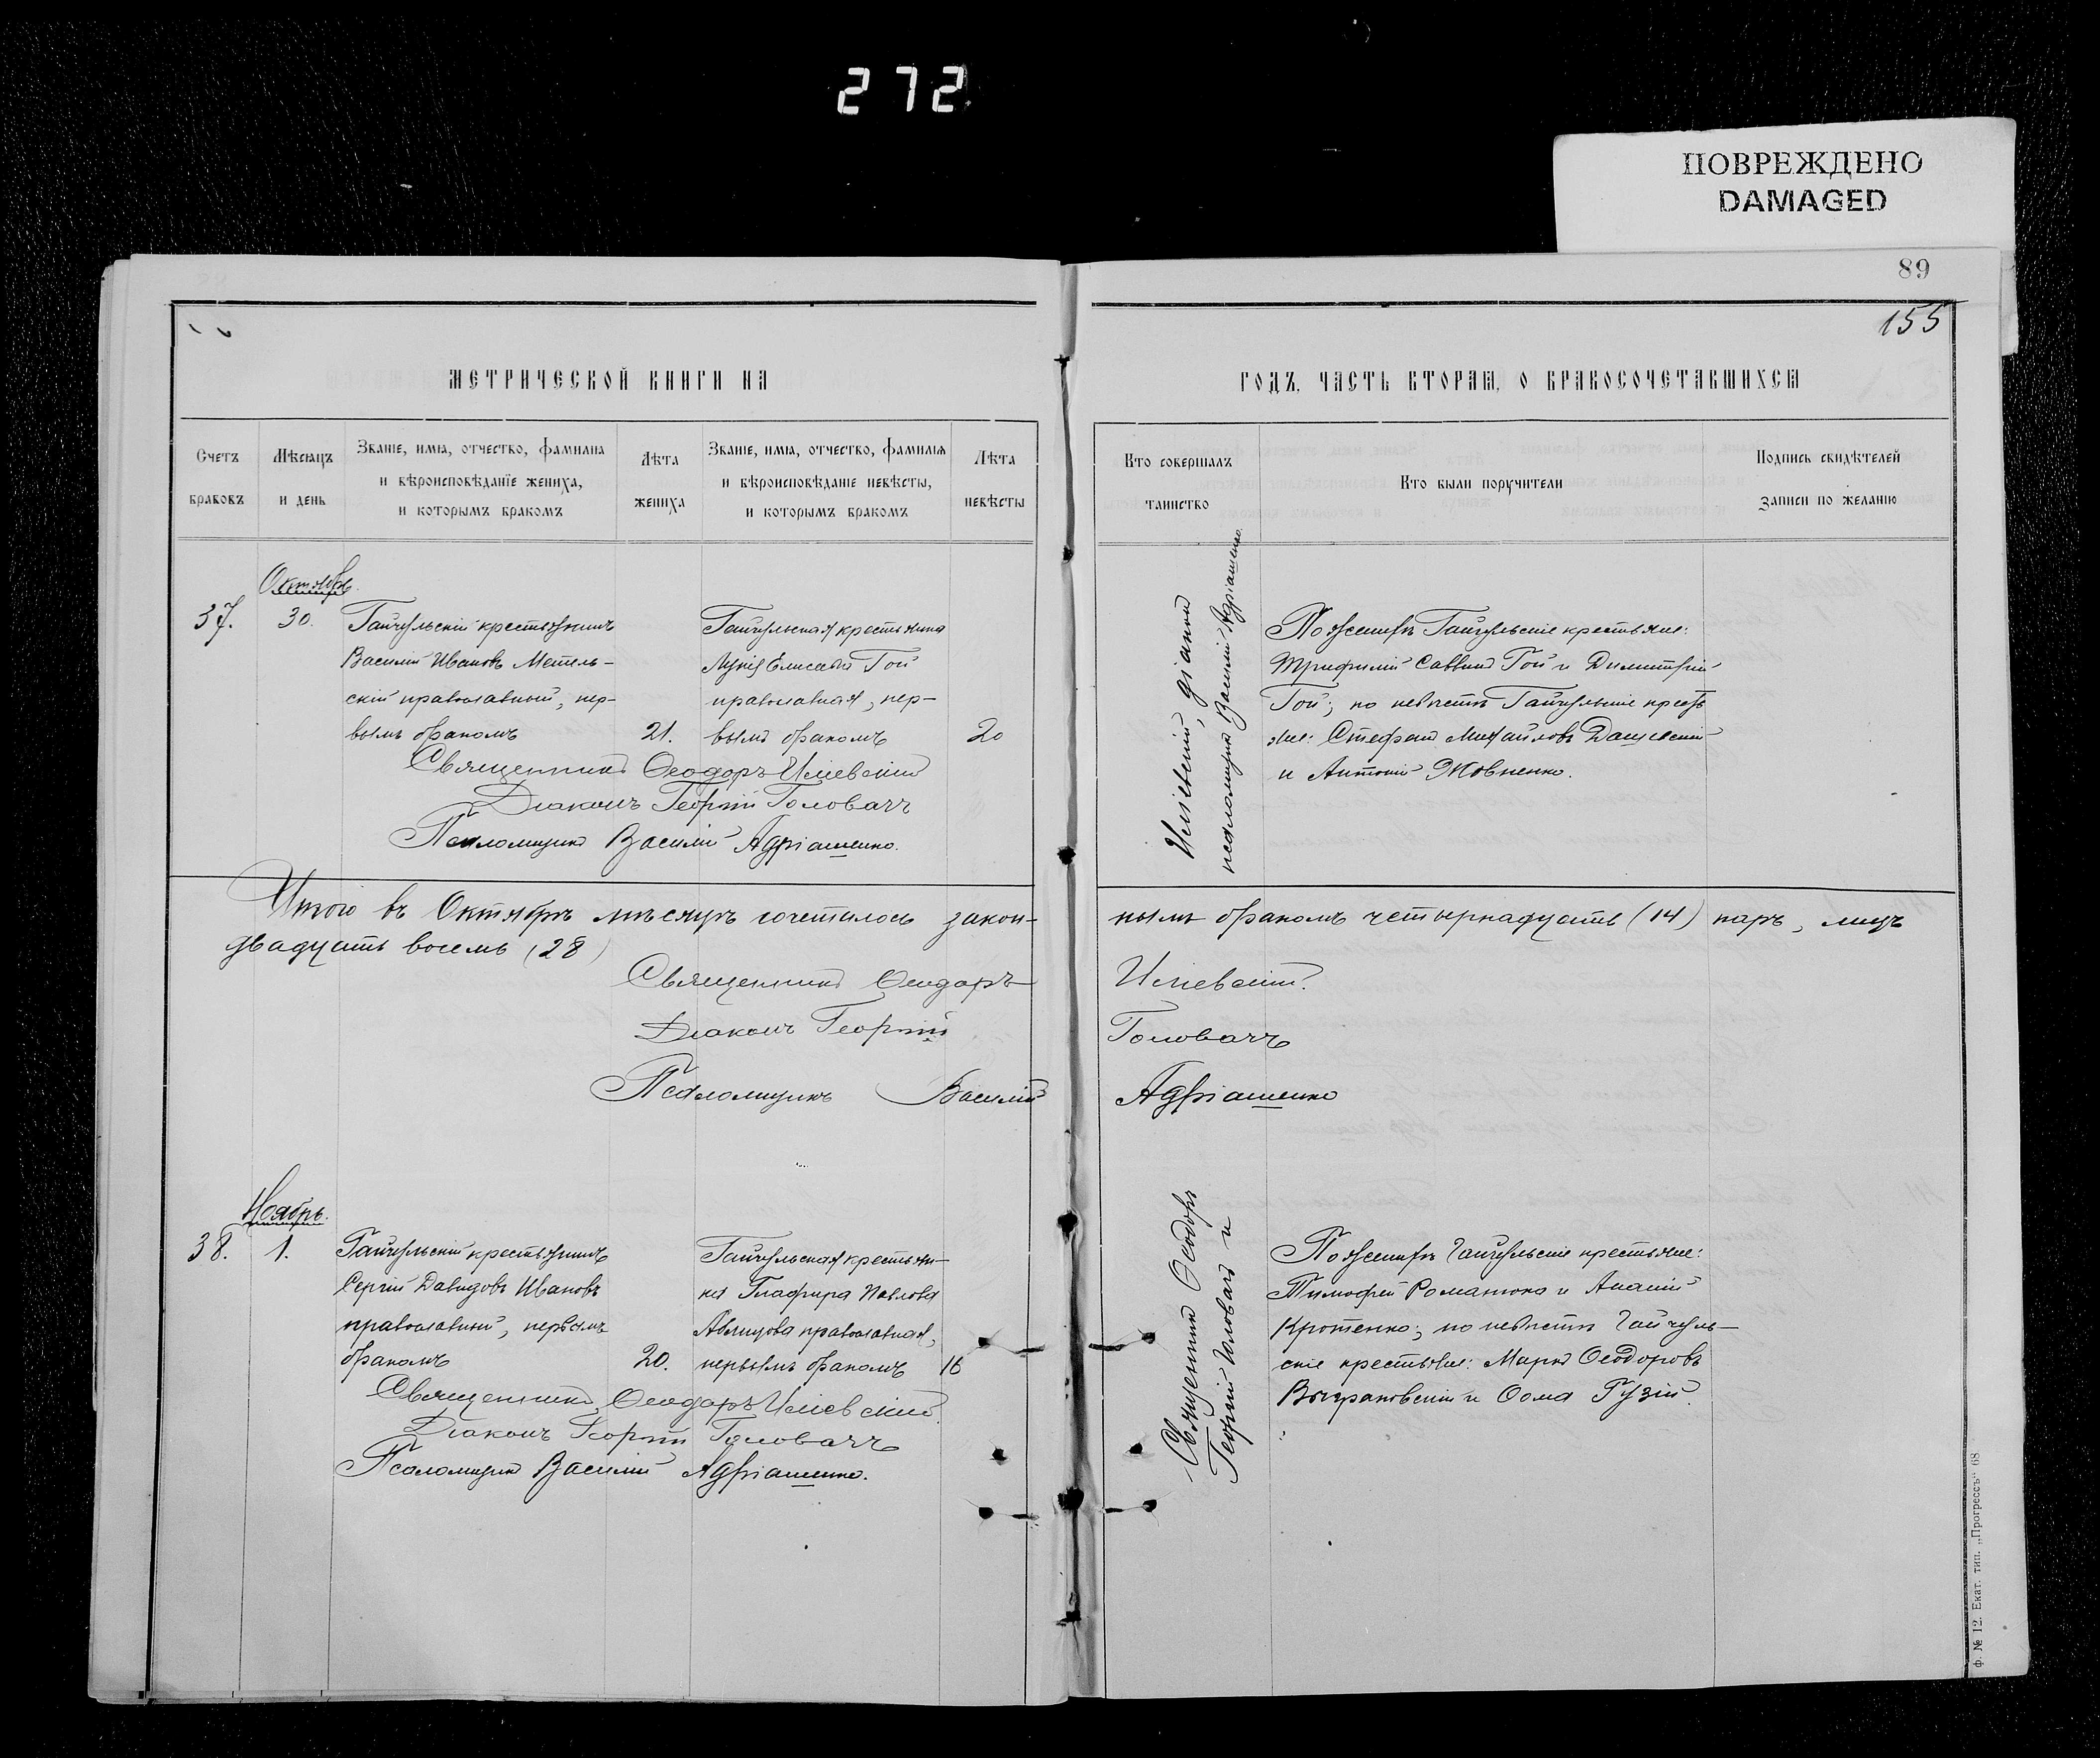 272
ПОВРЕЖДЕНО
DAMAGED
89
155
МЕТРИЧЕСКОЙ КНИГИ НА
ГОДЪ, ЧАСТЬ ВТОРАЯ, О БРАКОСОЧЕТАВШИХСЯ
Счетъ браковъ
Мѣсяцъ и день
Званіе, имя, отчество, фамилія и вѣроисповѣданіе жениха, и которымъ бракомъ
Лѣта жениха
Званіе, имя, отчество, фамилія и вѣроисповѣданіе невѣсты, и которымъ бракомъ
Лѣта невѣсты
Кто совершалъ таинство
Кто были поручители
Подпись свидѣтелей записи по желанію
Октябрь
37.
30.
Гайчульскій крестьянинъ
Василій Ивановъ Метель-
скій православный, пер-
вымъ бракомъ
21.
Гайчульская крестьянка
Елисаева Гой
православная, пер-
вымъ бракомъ
20
Священникъ Ѳеодоръ
Діаконъ Георгій Головачъ
Псаломщикъ Василій Адріашенко.
діаконъ
псаломщикъ Василій Адріашенко.
По женихѣ Гайчульскіе крестьяне:
Трифилій Саввинъ Гой и Димитрій
Гой; по невѣстѣ Гайчульскіе кресть
яне: Стефанъ Михайловъ Дащевскій
и Антоній Жовненко.
Итого въ Октябрѣ мѣсяцѣ сочеталось закон-
нымъ бракомъ четырнадцать (14) паръ, лицъ
двадцать восемь (28)
Священникъ Ѳеодоръ
Діаконъ Георгій
Головачъ
Псаломщикъ Василій
Адріашенко
Ноябрь.
38.
1.
Гайчульскій крестьянинъ
Сергій Давидовъ Ивановъ
православный, первымъ
бракомъ
20.
Гайчульская крестьян-
ка Глафира Павлова
православная,
первымъ бракомъ
16
Священникъ Ѳеодоръ
Діаконъ Георгій Головачъ
Псаломщикъ Василій Адріашенко.
Священникъ Ѳеодоръ
Георгій Головачъ и
По женихѣ Гайчульскіе крестьяне:
Тимофей Романюка и Ананій
Кротенко; по невѣстѣ Гайчуль-
скіе крестьяне: Марко Ѳеодоровъ
Выграновскій и Ѳома Гузій.
ф. № 12. Екат. тип. „Прогрессъ“ 68